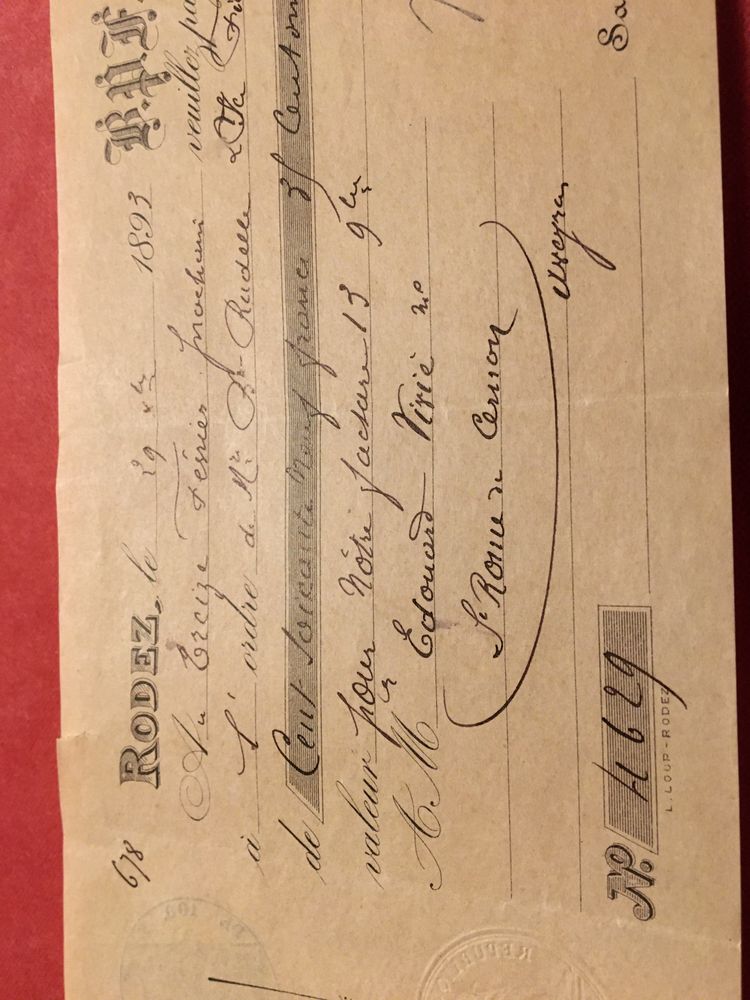 678
RODEZ, le 29 xbre 1893 B.P.F.
Au Treize Février prochain veuillez pa
à l'ordre de Mr Bn Rudelle & Fils
de Cent soixante neuf francs 35 Centim
valeur pour Notre facture 13 9bre
A M. Edouard Virié
St Rome de Cernon
Aveyron
No. 4629
L. LOUP-RODEZ